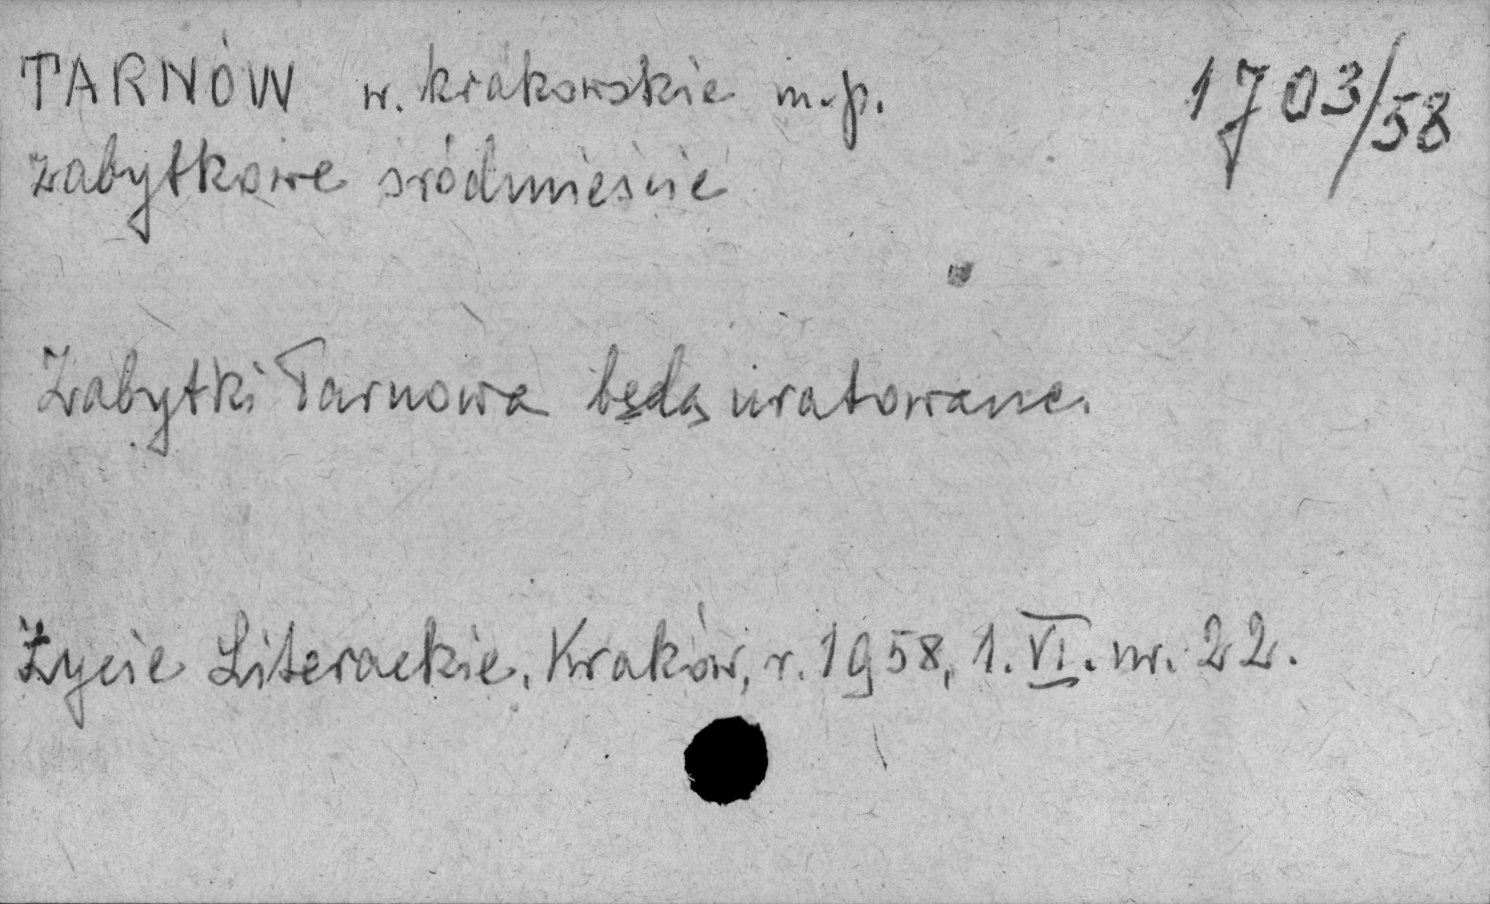 TARNÓW w. krakowskie m.p. 1703/58
zabytkowe śródmieście
Zabytki Tarnowa będą uratowane.
Życie Literackie, Kraków, r. 1958, 1. VI. nr. 22.